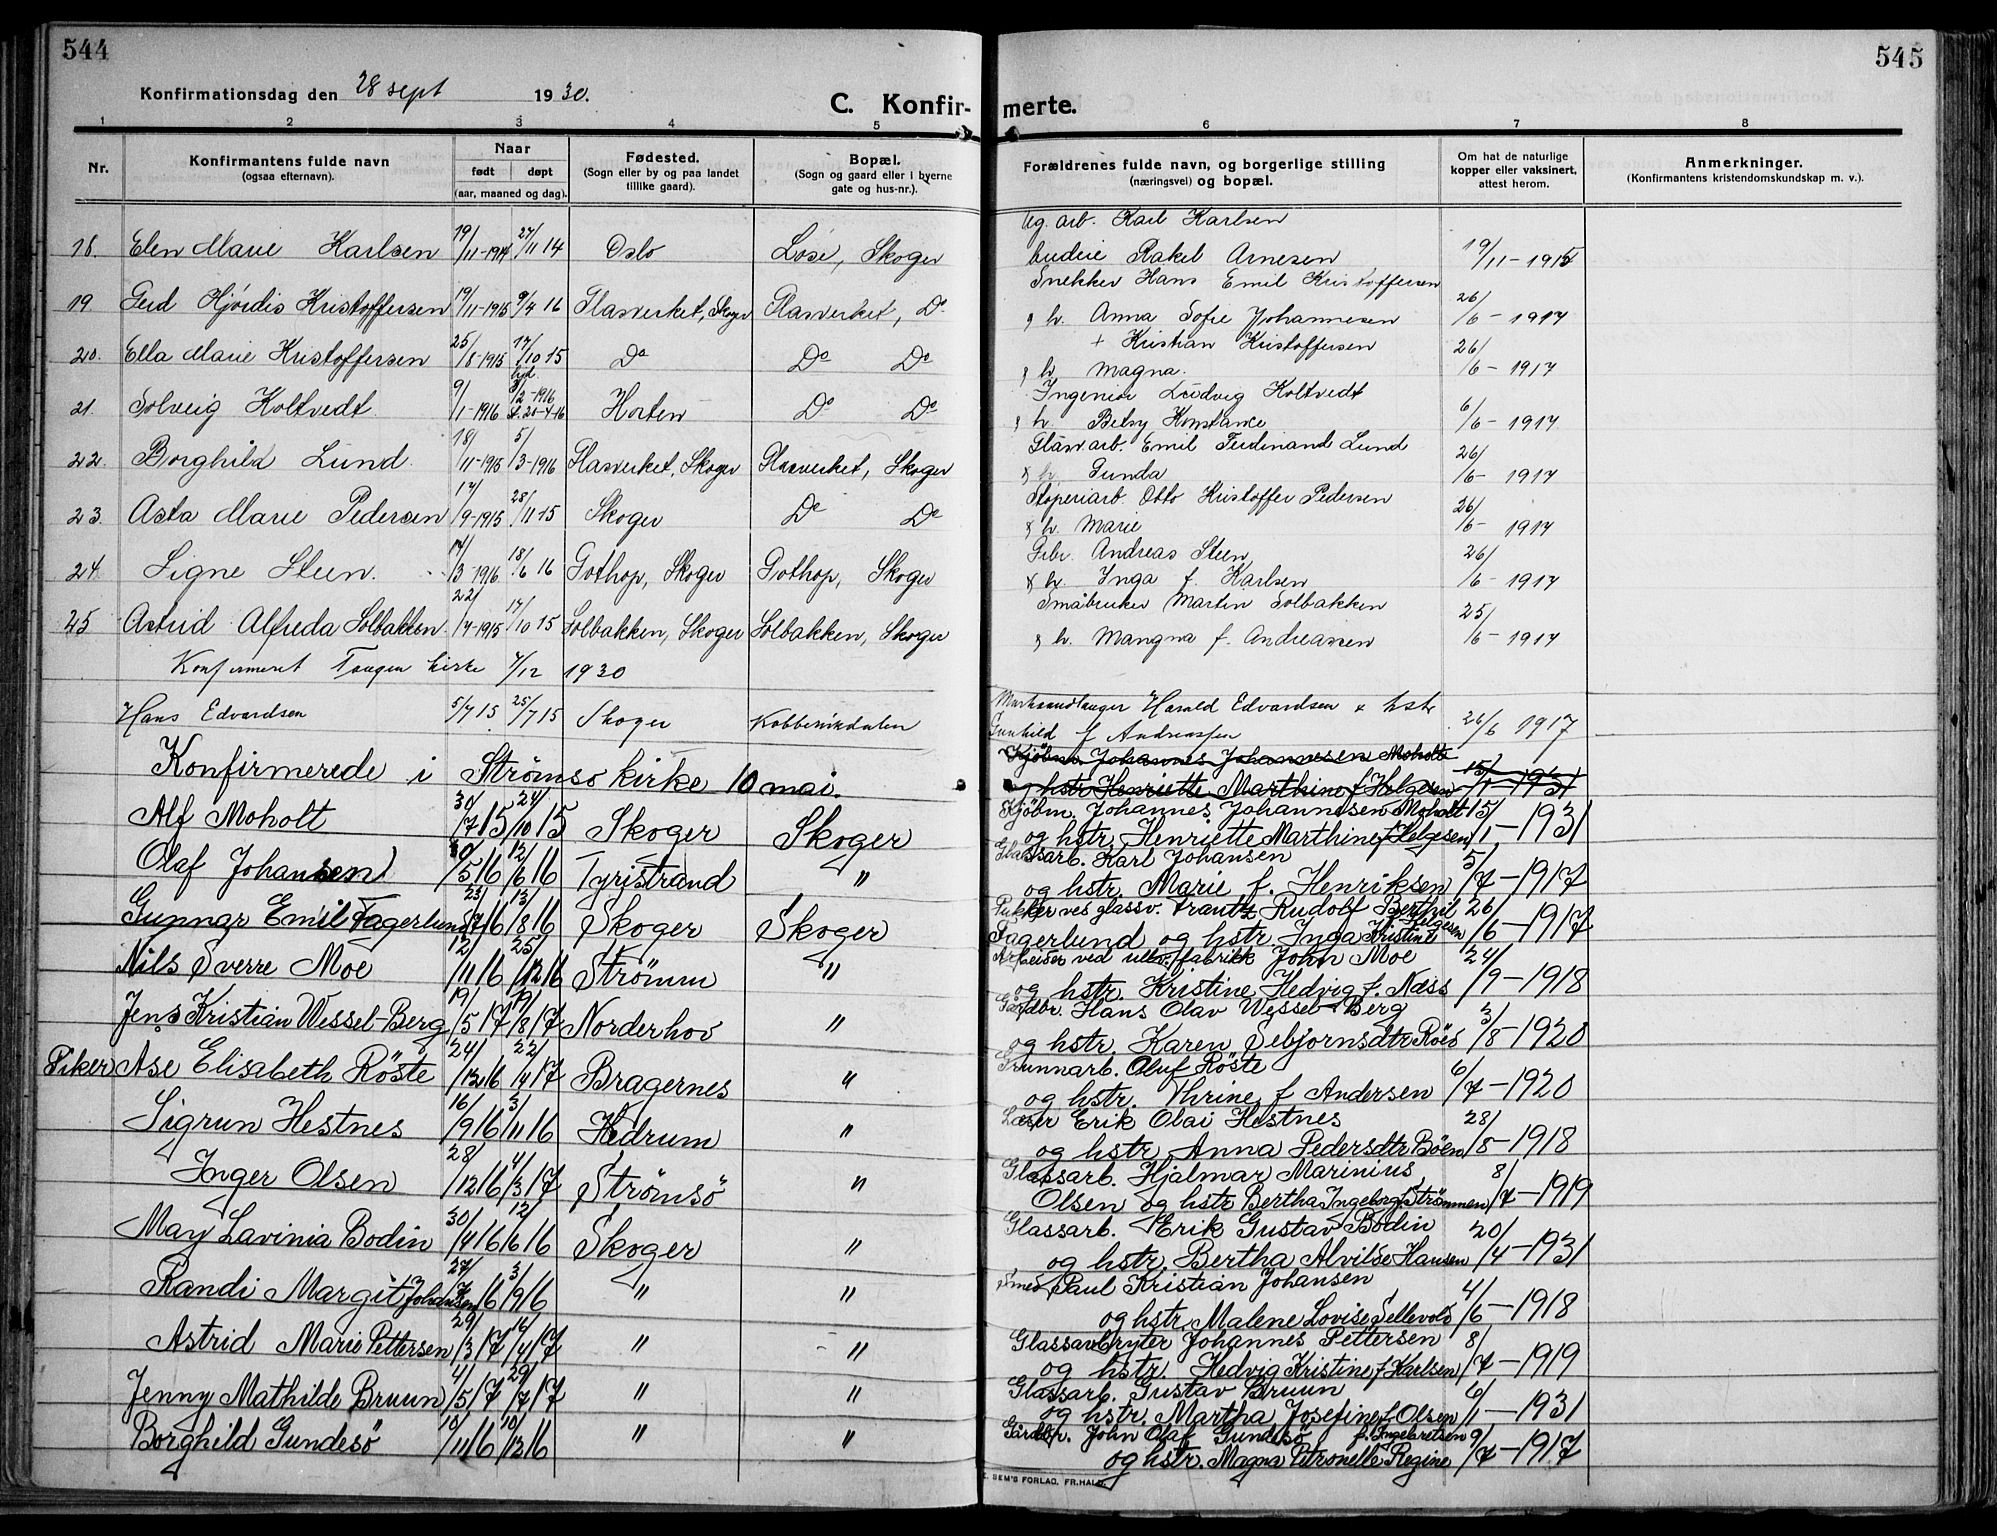 544
545
Konfirmationsdag den 28 sept 1930.
C. Konfir-
merte.
1 2 3 4 5 6 7 8
Nr.
Konfirmantens fulde navn
(ogsaa efternavn).
Naar
født døpt
(aar, maaned og dag).
Fødested.
(Sogn eller by og paa landet
tillike gaard).
Bopæl.
(Sogn og gaard eller i byerne
gate og hus-nr.).
Forældrenes fulde navn, og borgerlige stilling
(næringsvei) og bopæl.
Om hat de naturlige
kopper eller vaksinert,
attest herom.
Anmerkninger.
(Konfirmantens kristendomskundskap m. v.).
Ug. arb. Karl Karlsen
18. Elen Marie Karlsen 19/11-1914 27/11 14 Oslo Løsi, Skoger budeie Rakel Arnesen 19/11-1915
Snekker Hans Emil Kristoffersen
19. Gerd Hjørdis Kristoffersen 19/11-1915 9/4 16 Glasverket, Skoger Glasverket, Do h. Anna Sofie Johannesen 26/6-1917
+ Kristian Kristoffersen
20. Ella Marie Kristoffersen 25/8-1915 17/10 15 Do Do Do h. Magna. 26/6-1917
Ingeniør Ludvig Koltvedt
21. Solveig Koltvedt 9/1-1916 /2-1916 20-4-16 Horten Do Do h. Betsy Konstance 6/6-1917
Glasv.arb. Emil Ferdinand Lund
22. Borghild Lund. 18/11-1915 5/3-1916 Glasverket, Skoger Glasverket, Skoger & h. Gunda 26/6-1917
Stoperiarb. Otto Kristoffer Pedersen
23. Asta Marie Pedersen 17/9-1915 28/11 15 Skoger Do Do & h. Marie 26/6-1917
Grbr. Andreas Steen
24. Signe Steen. 14/3 1916 18/6 16 Gothop, Skoger Gothop, Skoger & h. Inga f. Karlsen 26/6-1917
Småbruker Marten Solbakken
25 Astrid Alfreda Solbakken 22/7-1915 17/10 15 Solbakken, Skoger Solbakken, Skoger h. Mangna f. Andreassen 25/6-1917
Konfirmeret Tangen kirke 7/12 1930
Hans Edvardsen 5/7 15 25/7 15 Skoger Kobbervikdalen Harald Edvardsen & hstr Gunhild f Andreassen 26/6 1917
Konfirmerede i Strømsø kirke 10 mai.
Kjöbm. Johannes Johannesen Moholt
og hstr. Henriette Marthine f Helgesen 15/1-1931
Alf Moholt 30/7 15 24/10 15 Skoger Skoger Kjöbm. Johannes Johannesen Moholt
og hstr. Henriette Marthine f Helgesen 15/1-1931
Olaf Johansen 30/5 16 12/6 16 Tyristrand " Glassarb. Karl Johansen
og hstr. Marie f. Henriksen 5/7-1917
Gunnar Emil Fagerlund 23/7 16 13/8 16 Skoger Skoger Pakker ved glassv. Frantz Rudolf Berthil
Fagerlund og hstr Inga Kristine f Helgesen 26/6-1917
Nils Sverre Moe 12/11 16 25/12 16 Strømm " Arbeider ved ullv. fabrikk John Moe
og hstr. Kristine Hedvig f. Næss 24/9-1918
Jens Kristian Wessel-Berg 19/5 17 19/8 17 Norderhov " Gårdbr. Hans Olav Wessel-Berg
og hstr. Karen Sebjørnsdtr Röed 3/8-1920
Piker Ase Elisabeth Röste 24/12 16 22/4 17 Bragernes " Grunnarb. Oluf Röste
og hstr. Thrine f Andersen 6/7-1920
Sigrun Hestnes 16/9 16 3/11 16 Hedrum " Lærer Erik Olai Hestnes
og hstr. Anna Pedersdtr Böen 28/8-1918
Inger Olsen 28/12 16 4/3 17 Strømsö " Glassarb. Hjalmar Marinius
Olsen og hstr Bertha Ingeborg f Strømmen 8/7-1919
May Lavinia Bodin 30/4 16 12/6 16 Skoger " Glassarb. Erik Gustav Bodin
og hstr. Bertha Alvilde Hansen 20/4-1931
Randi Margit Johansen 27/7 16 3/9 16 " " Smed Paul Kristian Johansen
og hstr Malene Lovise Sellevold 4/6-1918
Astrid Marie Pettersen 29/3 17 16/4 17 " " Glassavbryter Johannes Pettersen
og hstr. Hedvig Kristine f Karlsen 8/7-1919
Jenny Mathilde Bruun 4/5 17 29/7 17 " " Glassarb. Gustav Bruun
og hstr. Martha Josefine f Olsen 6/1-1931
Borghild Gundesö 10/11 16 10/12 16 " " Gårdbr. John Olaf Gundesö f. Ingebretsen
og hstr. Magna Petronelle Regine 9/7-1917
SEM'S FORLAG. FR.HALD.